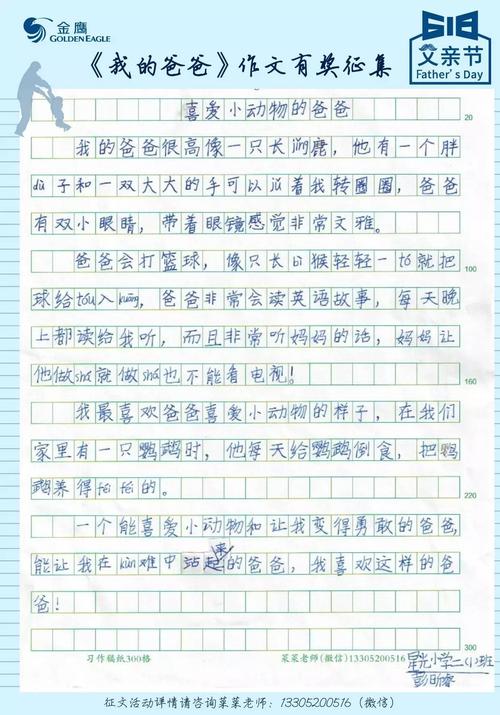 金鹰
GOLDEN EAGLE
618
父亲节
Father's Day
《我的爸爸》作文有奖征集
喜爱小动物的爸爸
20
我的爸爸很高像一只长颈鹿，他有一个胖
dǔ子和一双大大的手可以 着我转圈圈，爸爸
有双小眼睛，带着眼镜感觉非常文雅。
爸爸会打篮球，像只长 猴轻轻一tóu就把
100
球给tóu入kuāng，爸爸非常会读英语故事，每天晚
上都读给我听，而且非常听妈妈的话，妈妈让
他做shá就做shá也不能看电视！
160
我最喜欢爸爸喜爱小动物的样子，在我们
家里有一只鹦鹉时，他每天给鹦鹉倒食，把鹦
鹉养得féi féi的。
220
一个能喜爱小动物和让我变得勇敢的爸爸，
能让我在kùn难中站起来的爸爸，我喜欢这样的爸
爸！
300
习作稿纸300格
菜菜老师(微信)13305200516
星光小学二(1)班
征文活动详情请咨询菜菜老师：13305200516（微信）